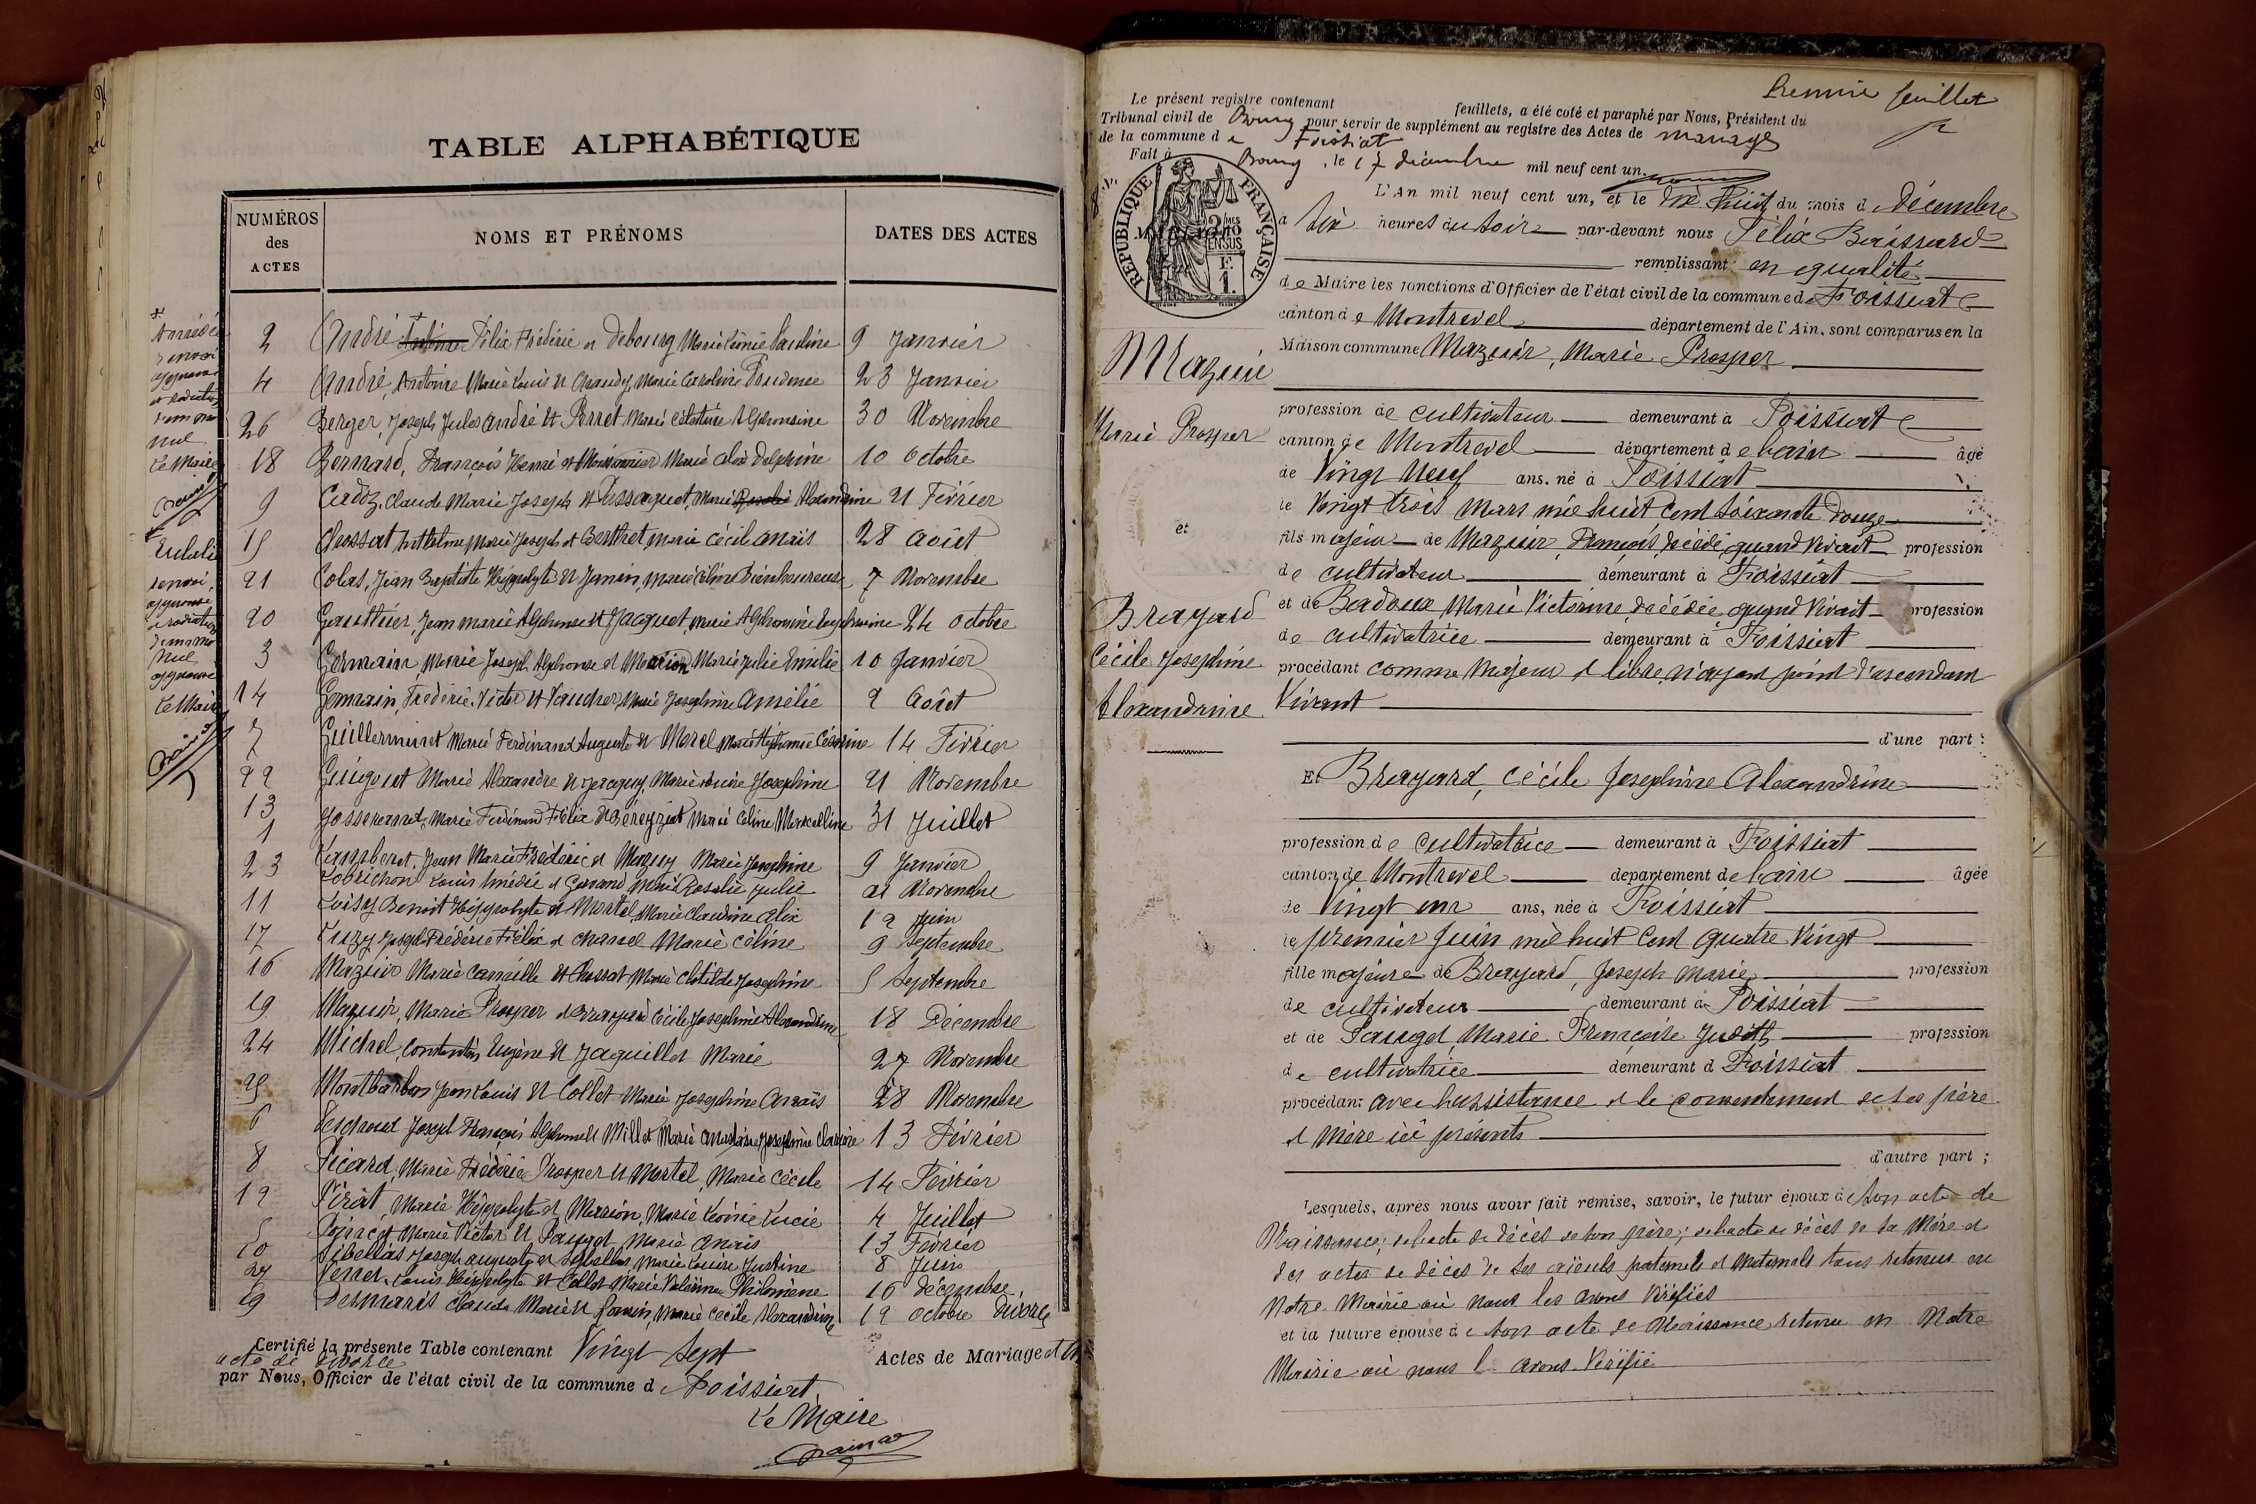 TABLE ALPHABÉTIQUE
NUMÉROS
des
ACTES
NOMS ET PRÉNOMS
DATES DES ACTES
2 André Félix Frédéric et Debourg Marie Pauline 9 Janvier
4 André, Antoine Marie Louis et Marie Caroline 23 Janvier
26 Berger, Joseph Jules André et Perret Marie Alphonsine 30 Novembre
18 Bernard, François Henri et Marie Delphine 10 Octobre
9 Claude Marie Joseph et Marie Alexandrine 21 Février
15 Chossat Marie Joseph et Berthet, Marie Cécile Anaïs 28 Août
21 Colas, Jean Baptiste Hippolyte et Janin, Marie Céline 7 Novembre
20 Gauthier, Jean Marie Alphonse et Jacquet, Marie 24 Octobre
3 Germain, Marie Joseph Alphonse et Marion, Marie Julie Emilie 10 Janvier
14 Germain, Frédéric Victor et Marie Josephine Amélie 2 Août
7 Guillerminet Marie Ferdinand Auguste et Morel 14 Février
22 Guigout Marie Alexandre et Marie Josephine 21 Novembre
13 Josserand, Marie Ferdinand Félix et Béreyziat Marie Céline Marcelline 31 Juillet
1 Lamberet, Jean Marie Frédéric et Mazuy Marie Josephine 9 Janvier
23 Lobrichon Louis Amédée et Marie Rosalie Julie 21 Novembre
11 Loisy Benoit Hippolyte et Martel, Marie Claudine Alix 12 Juin
17 Joseph Frédéric Félix et Marie Céline 9 Septembre
16 Mazuir Marie Camille et Chossat Marie Clotilde Josephine 5 Septembre
19 Mazuir, Marie Prosper et Brayard Cécile Josephine Alexandrine 18 Décembre
24 Michel, Constantin Eugène et Jaquillet Marie 27 Novembre
25 Montbarbon Jean Louis et Collet Marie Josephine Anaïs 28 Novembre
6 Joseph François Alphonse et Millet Marie Josephine 13 Février
8 Picard, Marie Frédéric Prosper et Martel, Marie Cécile 14 Février
12 Pirat, Marie Hippolyte et Marion, Marie Léonie Lucie 4 Juillet
5 Marie Victor et Pauget Marie Anaïs 13 Février
10 Joseph Auguste et Marie Louise Justine 8 Juin
27 Louis Hippolyte et Collet Marie Philomène 16 Décembre
19 Desmaris Claude Marie et Janin, Marie Cécile Alexandrine 12 Octobre Divorce
Certifié la présente Table contenant Vingt Sept Actes de Mariage et un
acte de divorce
par Nous, Officier de l'état civil de la commune d Foissiat
Le Maire
renvoi
approuvé
nul
Le Maire
Eulalie
renvoi
approuvé
nul
approuvé
Le Maire
Premier feuillet
Le présent registre contenant feuillets, a été coté et paraphé par Nous, Président du
Tribunal civil de Bourg pour servir de supplément au registre des Actes de mariage
de la commune d e Foissiat
Fait à Bourg, le 17 décembre mil neuf cent un.
RÉPUBLIQUE FRANÇAISE
L'An mil neuf cent un, et le dix huit du mois d décembre
à six heures du soir par-devant nous Félix Boissard
remplissant en qualité
de Maire les fonctions d'Officier de l'état civil de la commune de Foissiat
canton d e Montrevel département de l'Ain, sont comparus en la
Maison commune Mazuir, Marie Prosper
profession de cultivateur demeurant à Foissiat
canton de Montrevel département de l'ain âgé
de Vingt Neuf ans, né à Foissiat
le Vingt trois Mars mil huit cent soixante douze
fils majeur de Mazuir, François, décédé, quand Vivait profession
de cultivateur demeurant à Foissiat
et de Badoux, Marie Victorine, décédée, quand Vivait profession
de cultivatrice demeurant à Foissiat
procédant comme Majeur et libre n'ayant point d'ascendant
Vivant
d'une part :
Et Brayard, Cécile Josephine Alexandrine
profession de cultivatrice demeurant à Foissiat
canton de Montrevel département de l'ain âgée
de Vingt un ans, née à Foissiat
le premier Juin mil huit Cent quatre Vingt
fille majeure de Brayard, Joseph Marie profession
de cultivateur demeurant à Foissiat
et de Pauget, Marie Françoise Judith profession
de cultivatrice demeurant à Foissiat
procédant avec l'assistance et le consentement de ses père
et Mère ici présents
d'autre part ;
Lesquels, après nous avoir fait remise, savoir, le futur époux de son acte de
Naissance; de l'acte de décès de son père; de l'acte de décès de sa Mère et
des actes de décès de ses aïeuls paternels et Maternels tous retenus en
Notre Mairie où Nous les avons Vérifiés
et la future épouse de son acte de Naissance retenu en Notre
Mairie où nous l'avons Vérifié
Mazuir
Marie Prosper
et
Brayard
Cécile Josephine
Alexandrine